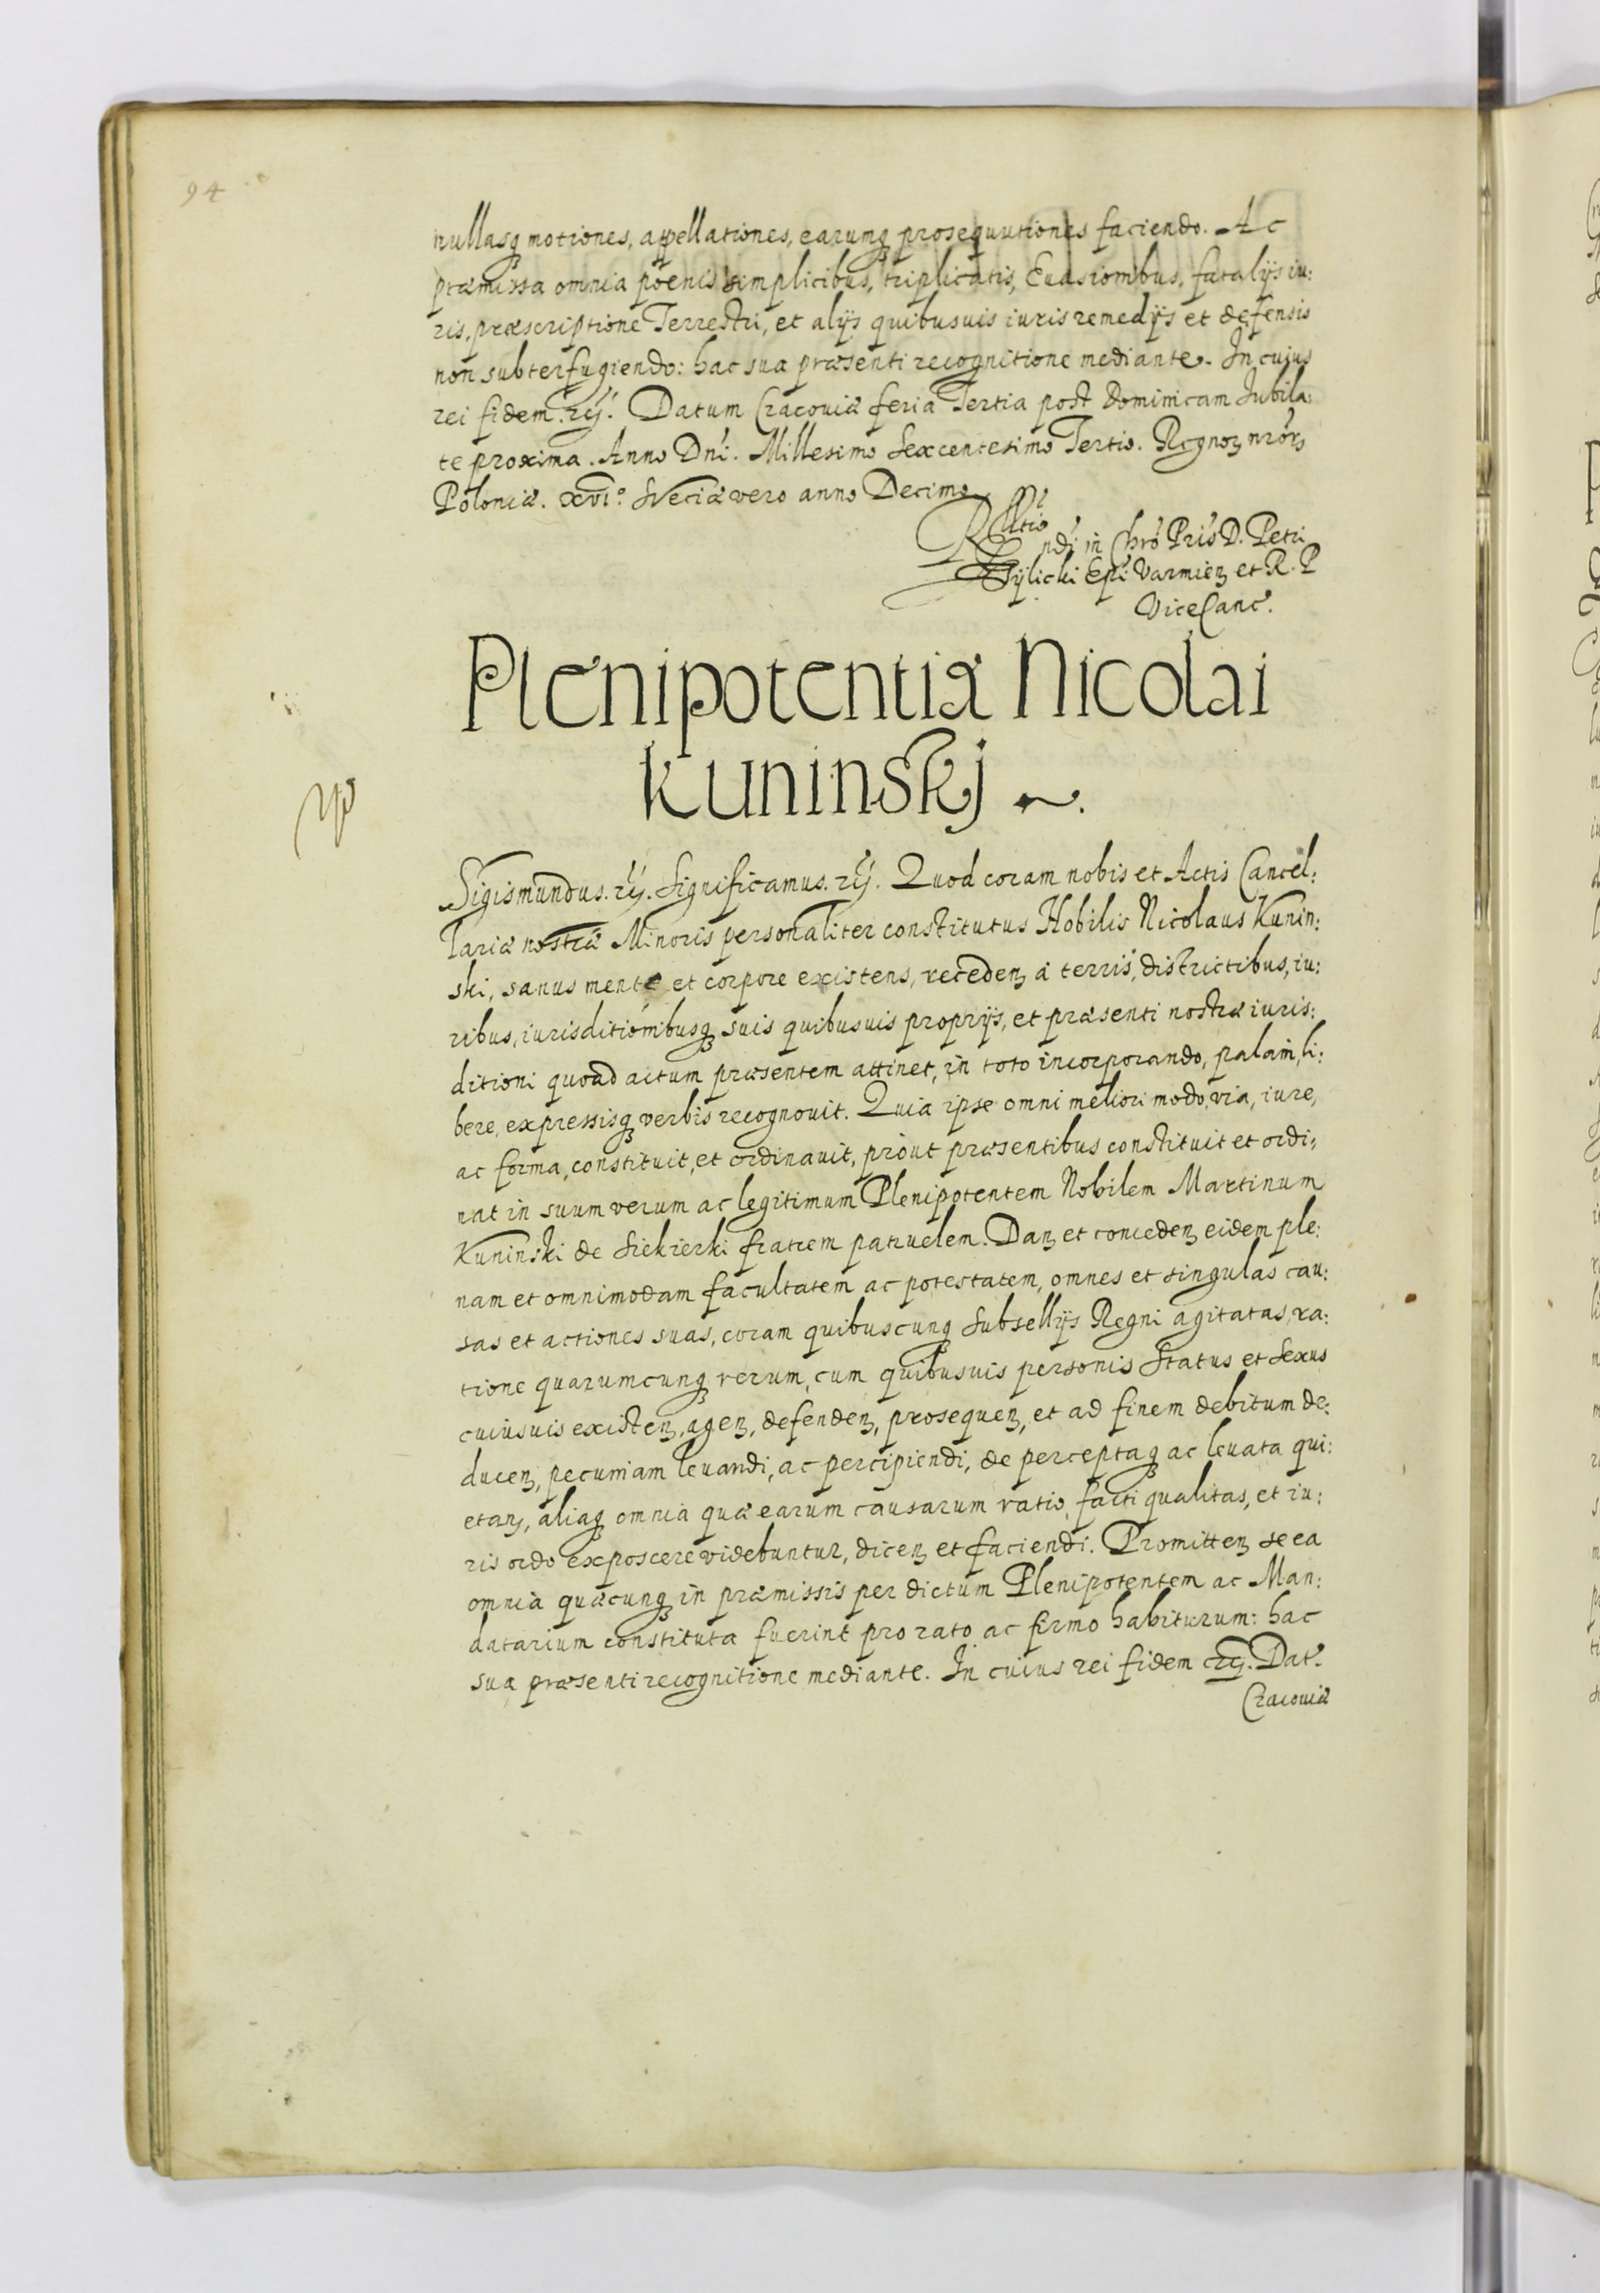 94
nullasq motiones, appellationes, earumq prosequutiones faciendo. Ac
præmissa omnia pœnis simplicibus, triplicatis, Euasionibus, fatalijs iu:
ris, præscriptione Terrestri, et alijs quibusuis iuris remedijs et defensis
non subterfugiendo: hac sua præsenti recognitione mediante. In cuius
rei fidem. Datum Cracouiæ feria Tertia post Dominicam Jubila:
te proxima. Anno Dni. Millesimo Sexcentesimo Tertio. Regnoꝝ nrōrꝫ
Poloniæ. xvi.° Sveciæ vero anno Decimo
Rltio
Rndi in Chrō Pris D. Petri
Tylicki Epi Varmien et R. P
ViceCanc.
Plenipotentia Nicolai
Kuninskj
Sigismundus. rꝫ. Significamus. rꝫ. Quod coram nobis et Actis Cancel:
lariæ nostræ Minoris personaliter constitutus Nobilis Nicolaus Kunin:
ski, sanus mente et corpore existens, recedenꝫ à terris, districtibus, iu:
ribus, iurisditionibusqꝫ suis quibusuis proprijs, et præsenti nostræ iuris:
ditioni quoad actum præsentem attinet, in toto incorporando, palam, li:
bere, expressisqꝫ verbis recognouit. Quia ipse omni meliori modo, via, iure,
ac forma, constituit, et ordinauit, prout præsentibus constituit et ordi:
nat in suum verum ac legitimum Plenipotentem Nobilem Martinum
Kuninski de Siekierki fratrem patruelem. Danꝫ et concedenꝫ eidem ple:
nam et omnimodam facultatem ac potestatem, omnes et singulas cau:
sas et actiones suas, coram quibuscunqꝫ Subsellijs Regni agitatas, ra:
tione quarumcunqꝫ rerum, cum quibusuis personis Status et Sexus
cuiusuis existenꝫ, agenꝫ, defendenꝫ, prosequenꝫ, et ad finem debitum de:
ducenꝫ, pecuniam leuandi, ac percipiendi, de perceptaqꝫ ac leuata qui:
etanꝫ, aliaqꝫ omnia quæ earum causarum ratio, facti qualitas, et iu:
ris ordo exposcere videbuntur, dicenꝫ et faciendi. Promittenꝫ se ea
omnia quæcunqꝫ in præmissis per dictum Plenipotentem ac Man:
datarium constituta fuerint pro rato ac firmo habiturum: hac
sua præsenti recognitione mediante. In cuius rei fidem rꝫ. Dat.
Cracouiæ